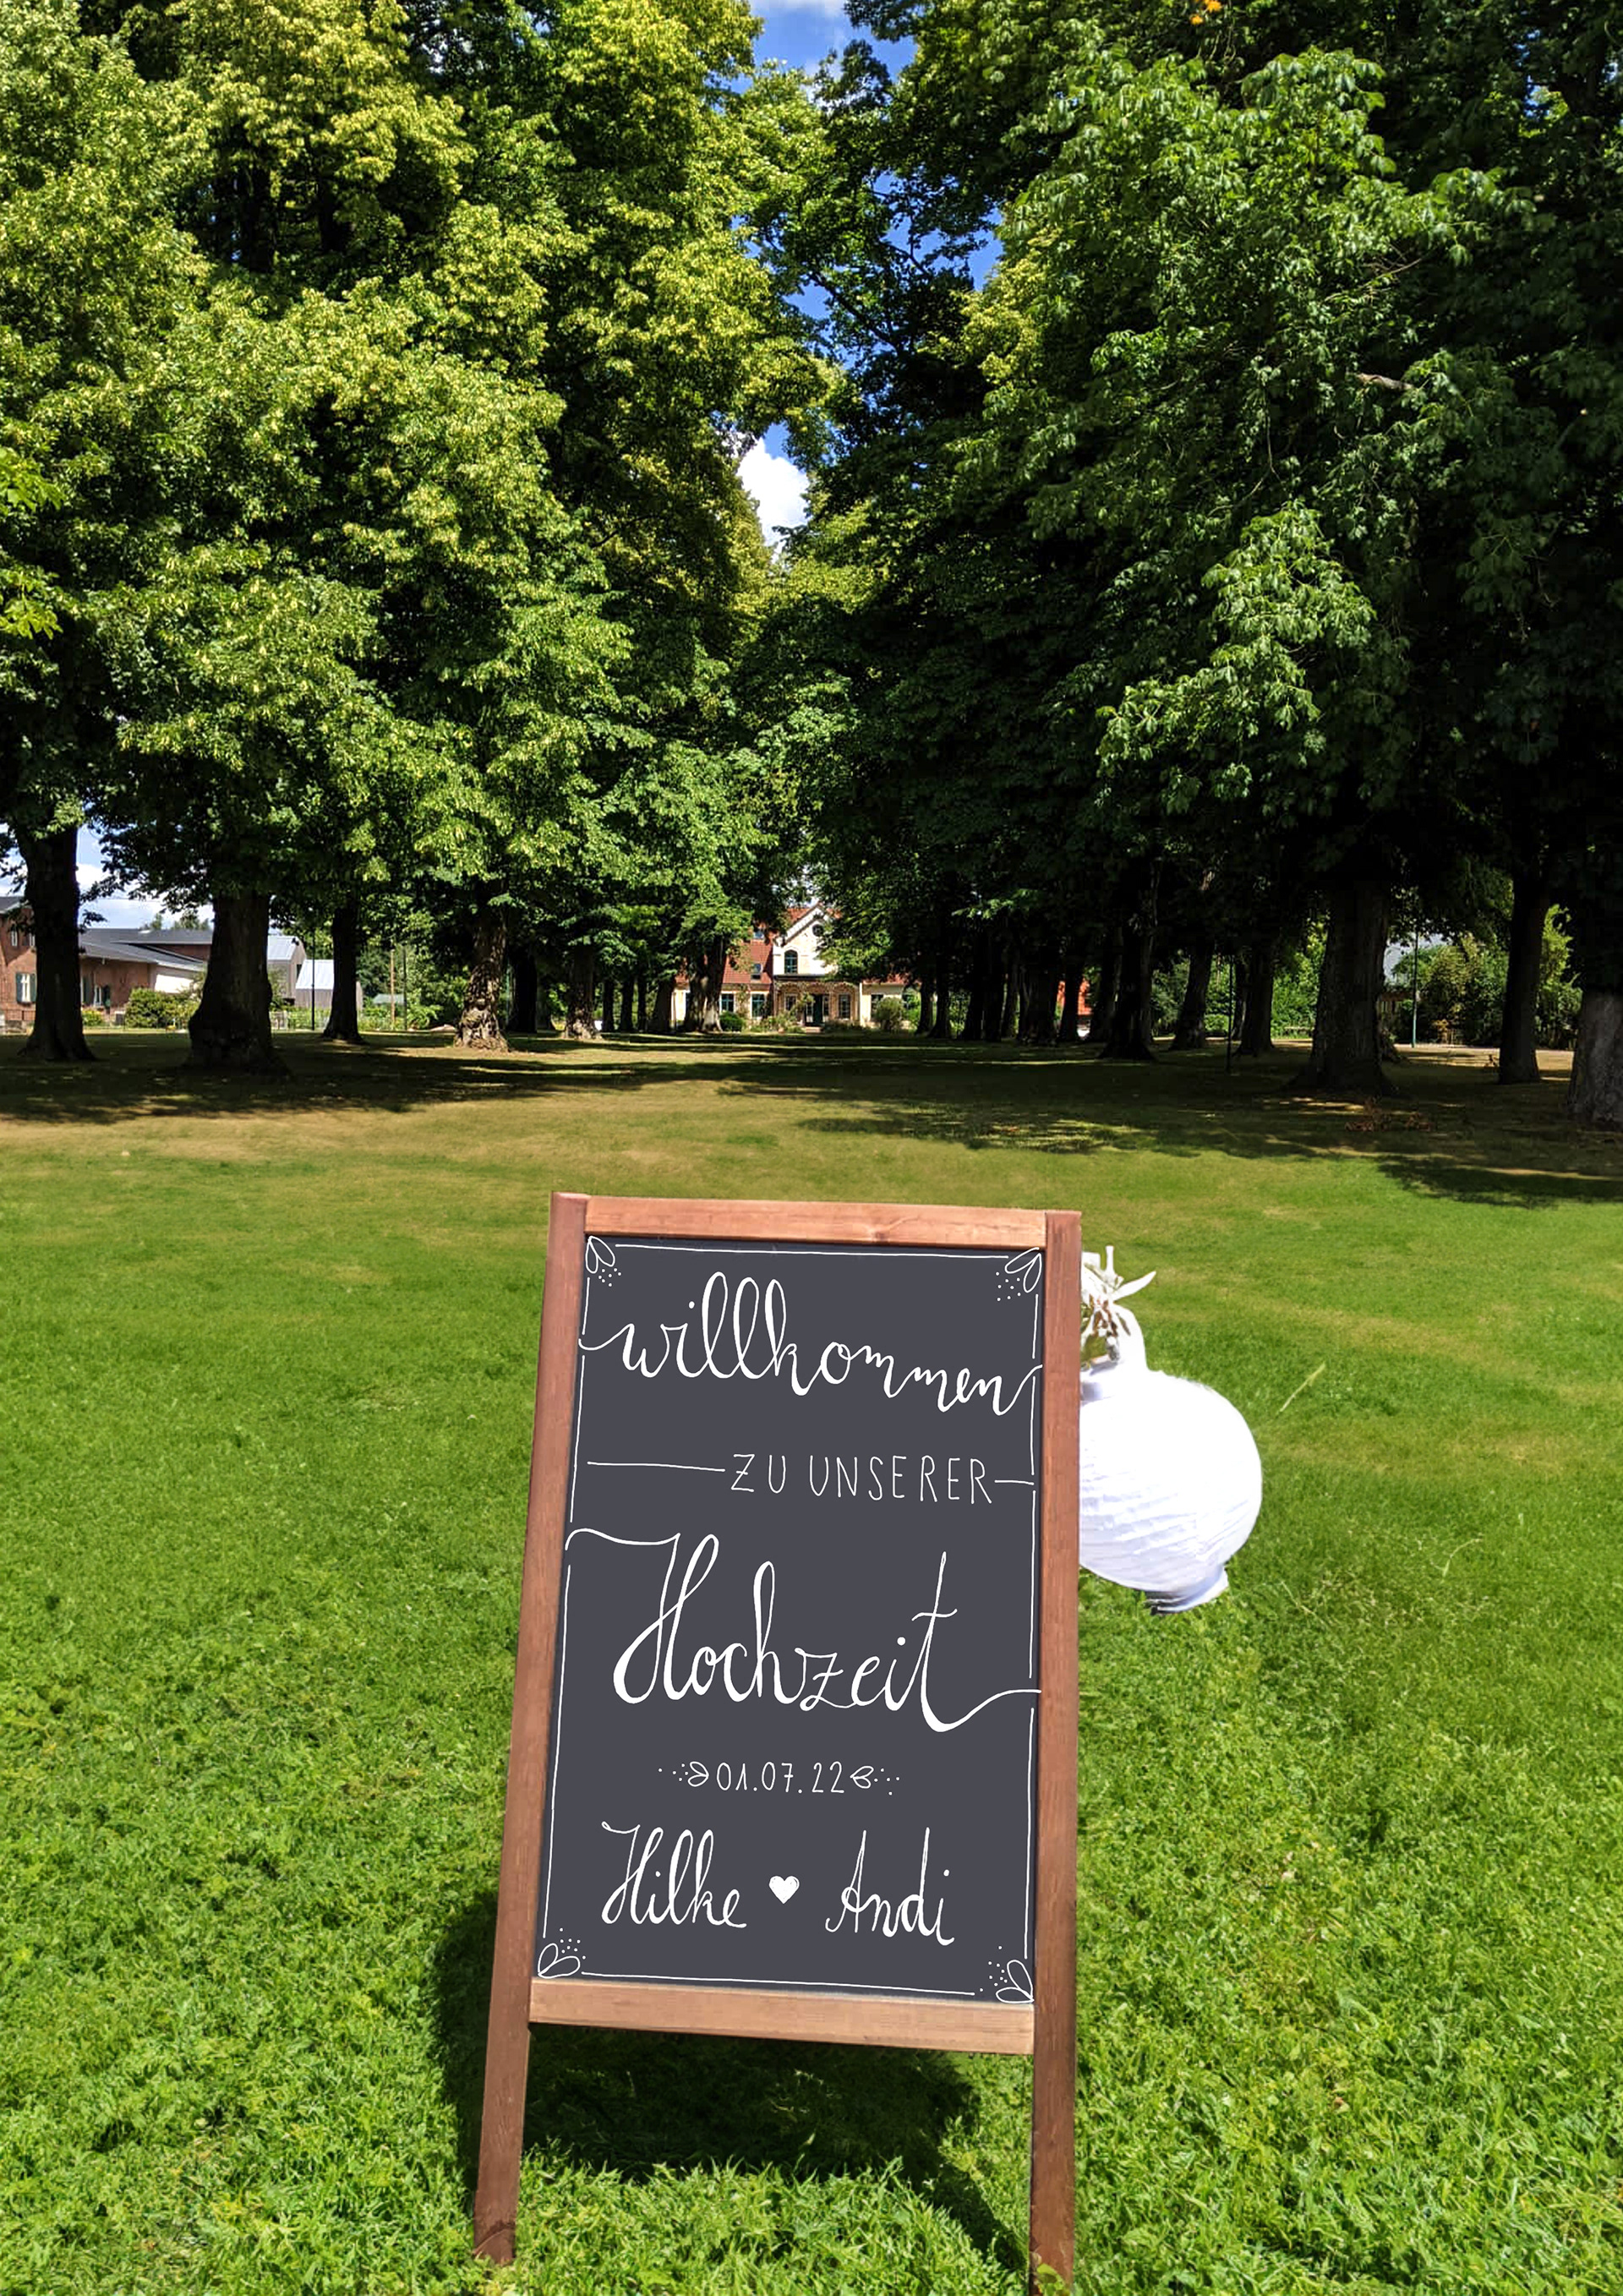 willkommen
ZU UNSERER
Hochzeit
01.07.22
Hilke ♥ Andi